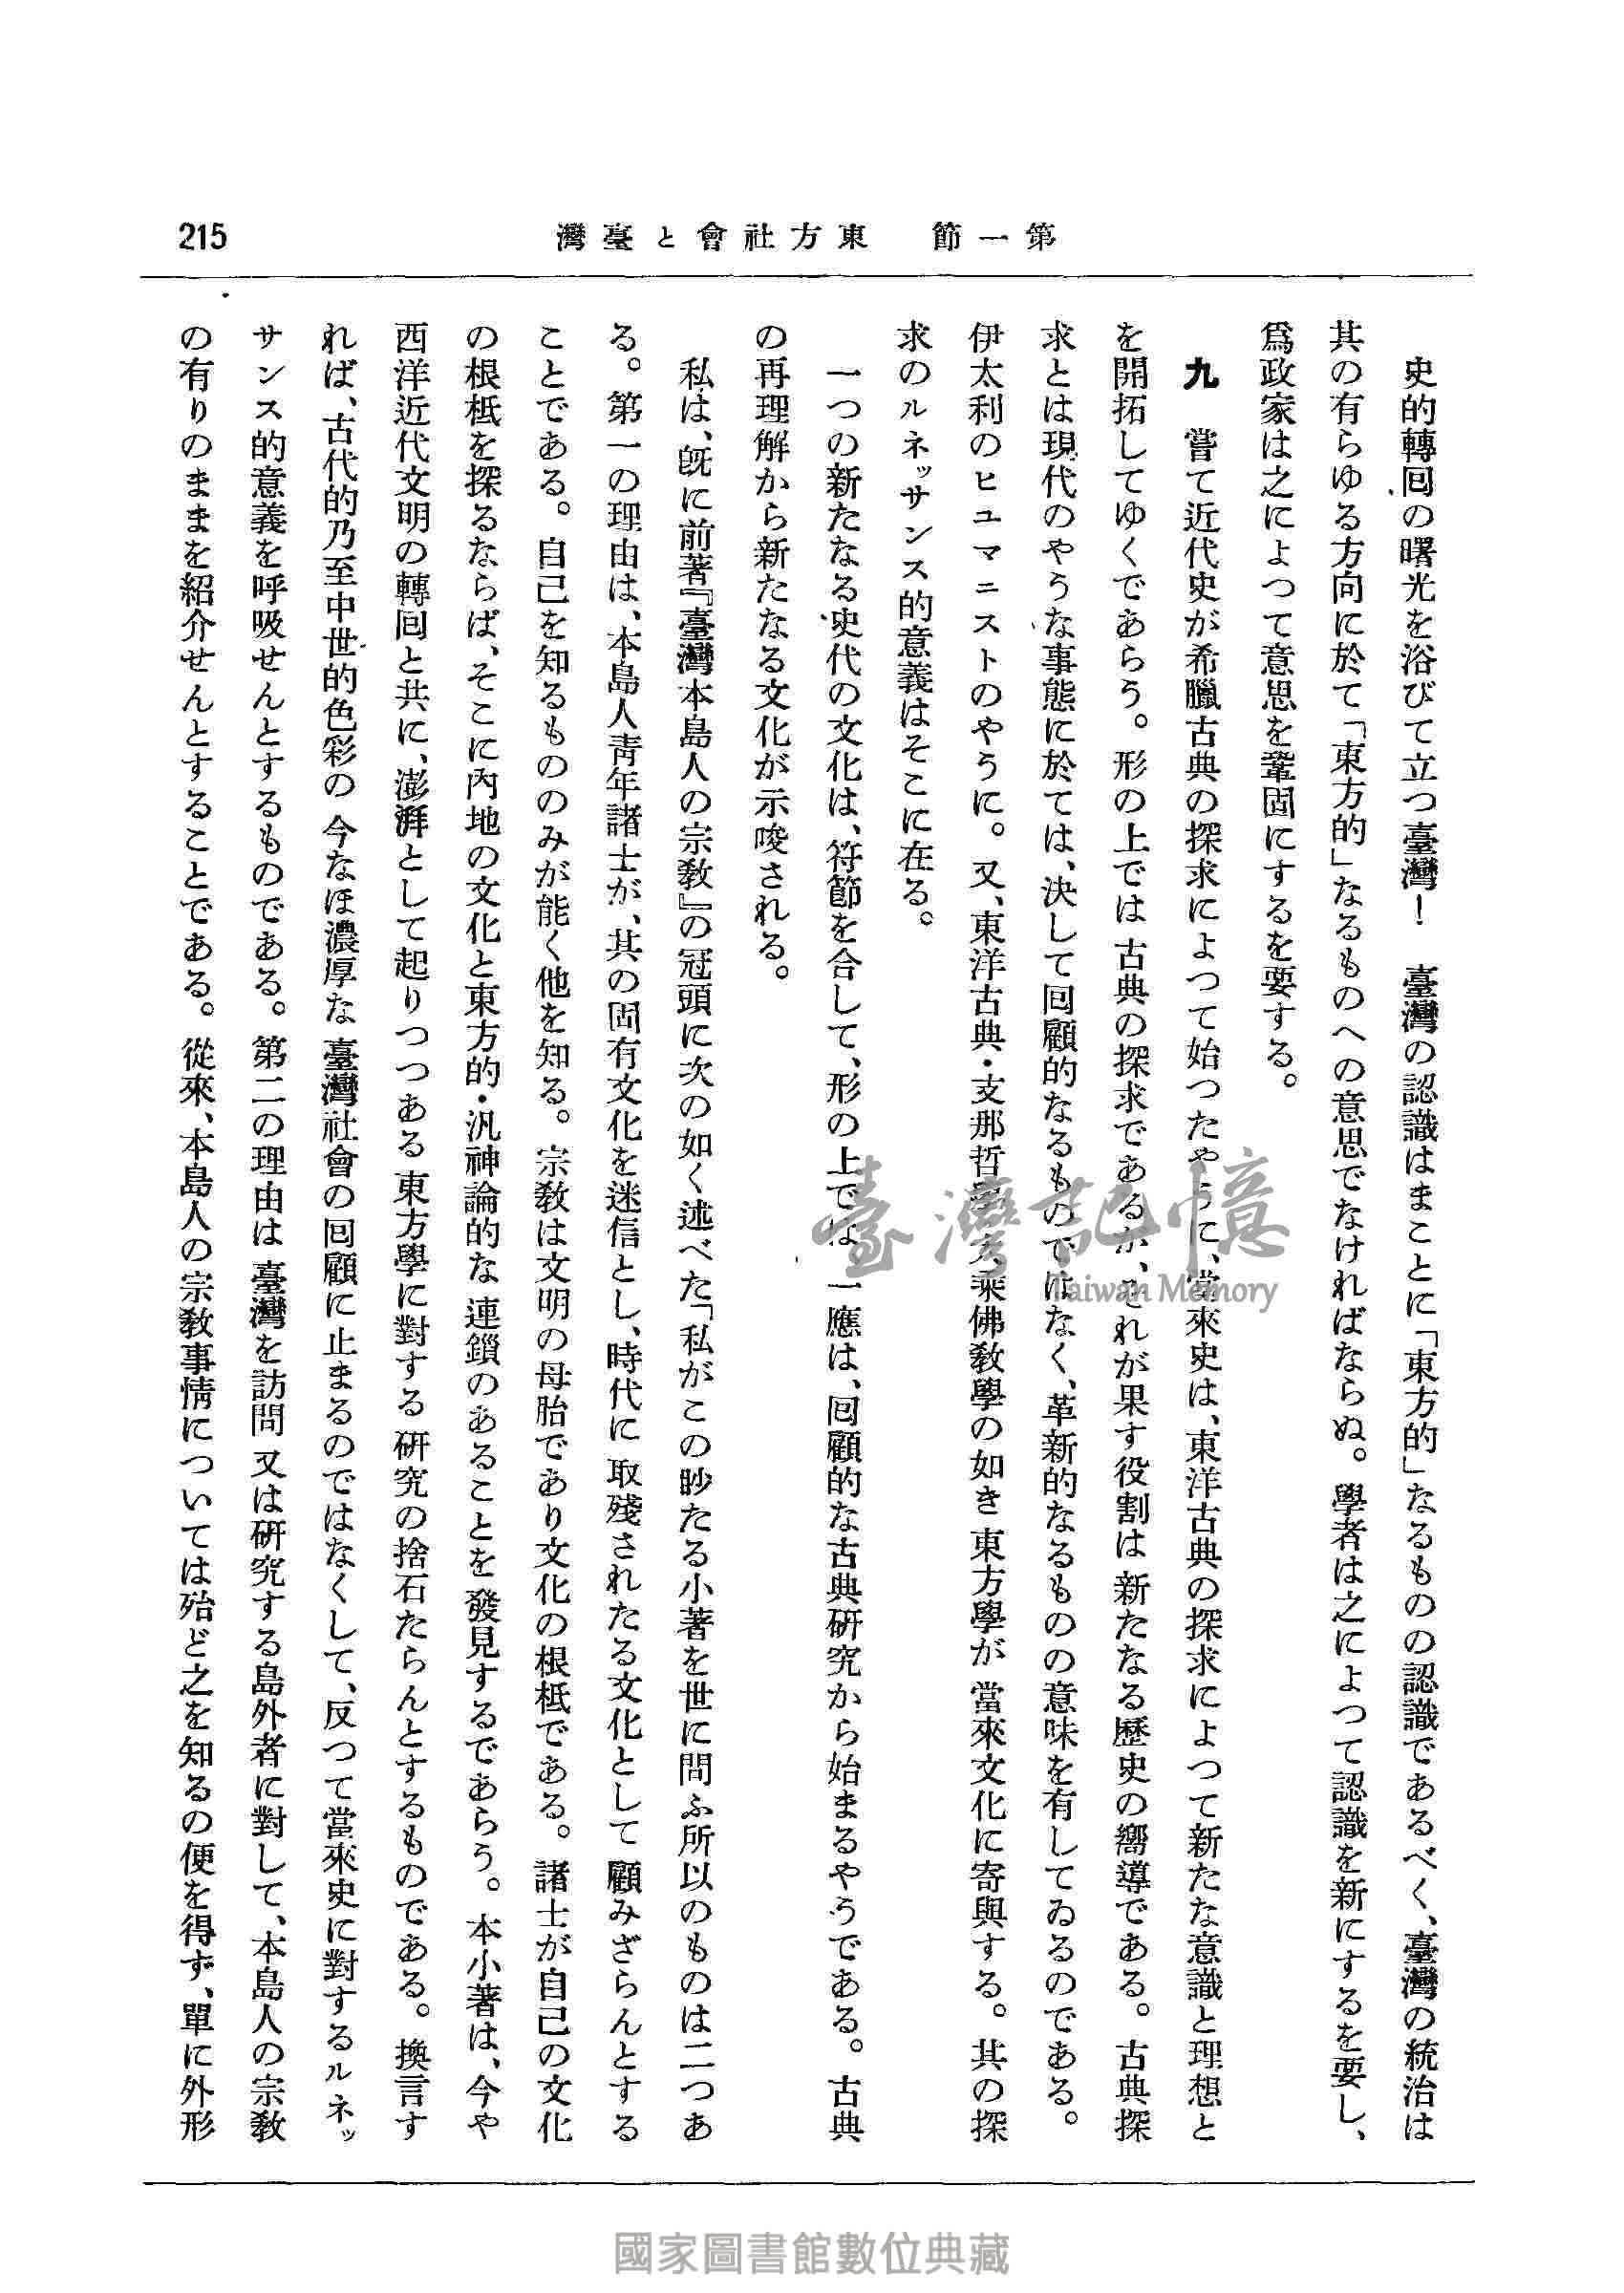 第一節　東方社會と臺灣
215
史的轉回の曙光を浴びて立つ臺灣！　臺灣の認識はまことに「東方的」なるものの認識であるべく、臺灣の統治は
其の有らゆる方向に於て「東方的」なるものへの意思でなければならぬ。學者は之によつて認識を新にするを要し、
爲政家は之によつて意思を鞏固にするを要する。
九　嘗て近代史が希臘古典の探求によつて始つたやうに、當來史は、東洋古典の探求によつて新たな意識と理想と
を開拓してゆくであらう。形の上では古典の探求であるが、それが果す役割は新たなる歷史の嚮導である。古典探
求とは現代のやうな事態に於ては、決して回顧的なるものではなく、革新的なるものの意味を有してゐるのである。
伊太利のヒユマニストのやうに。又、東洋古典・支那哲學大乘佛敎學の如き東方學が當來文化に寄與する。其の探
求のルネッサンス的意義はそこに在る。
一つの新たなる史代の文化は、符節を合して、形の上では、一應は、回顧的な古典硏究から始まるやうである。古典
の再理解から新たなる文化が示唆される。
私は、旣に前著『臺灣本島人の宗敎』の冠頭に次の如く述べた「私がこの眇たる小著を世に問ふ所以のものは二つあ
る。第一の理由は、本島人靑年諸士が、其の固有文化を迷信とし、時代に取殘されたる文化として顧みざらんとする
ことである。自己を知るもののみが能く他を知る。宗敎は文明の母胎であり文化の根柢である。諸士が自己の文化
の根柢を探るならば、そこに內地の文化と東方的・汎神論的な連鎖のあることを發見するであらう。本小著は、今や
西洋近代文明の轉回と共に、澎湃として起りつつある東方學に對する硏究の捨石たらんとするものである。換言す
れば、古代的乃至中世的色彩の今なほ濃厚な臺灣社會の回顧に止まるのではなくして、反つて當來史に對するルネッ
サンス的意義を呼吸せんとするものである。第二の理由は臺灣を訪問又は硏究する島外者に對して、本島人の宗敎
の有りのままを紹介せんとすることである。從來、本島人の宗敎事情については殆ど之を知るの便を得ず、單に外形
臺灣記憶
Taiwan Memory
國家圖書館數位典藏